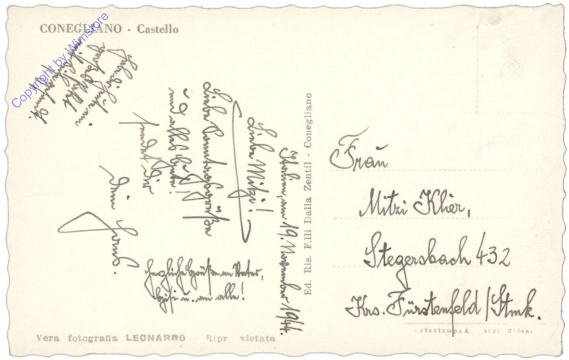 CONEGLIANO - Castello
Copyright by Wimstore
Italien, am 19. November 1941.
Liebe Mitzi!
Liebe Sonntagsgrüße
und alles Gute!
sendet Dir
Dein Hans.
Herzliche Grüße an Vater,
u. an alle!
Ed. Ris. F.lli Dalla Zentil - Conegliano
Frau
Mitzi Klier,
Stegersbach 432
Krs. Fürstenfeld/Stmk.
Vera fotografia LEONARDO - Ripr. vietata